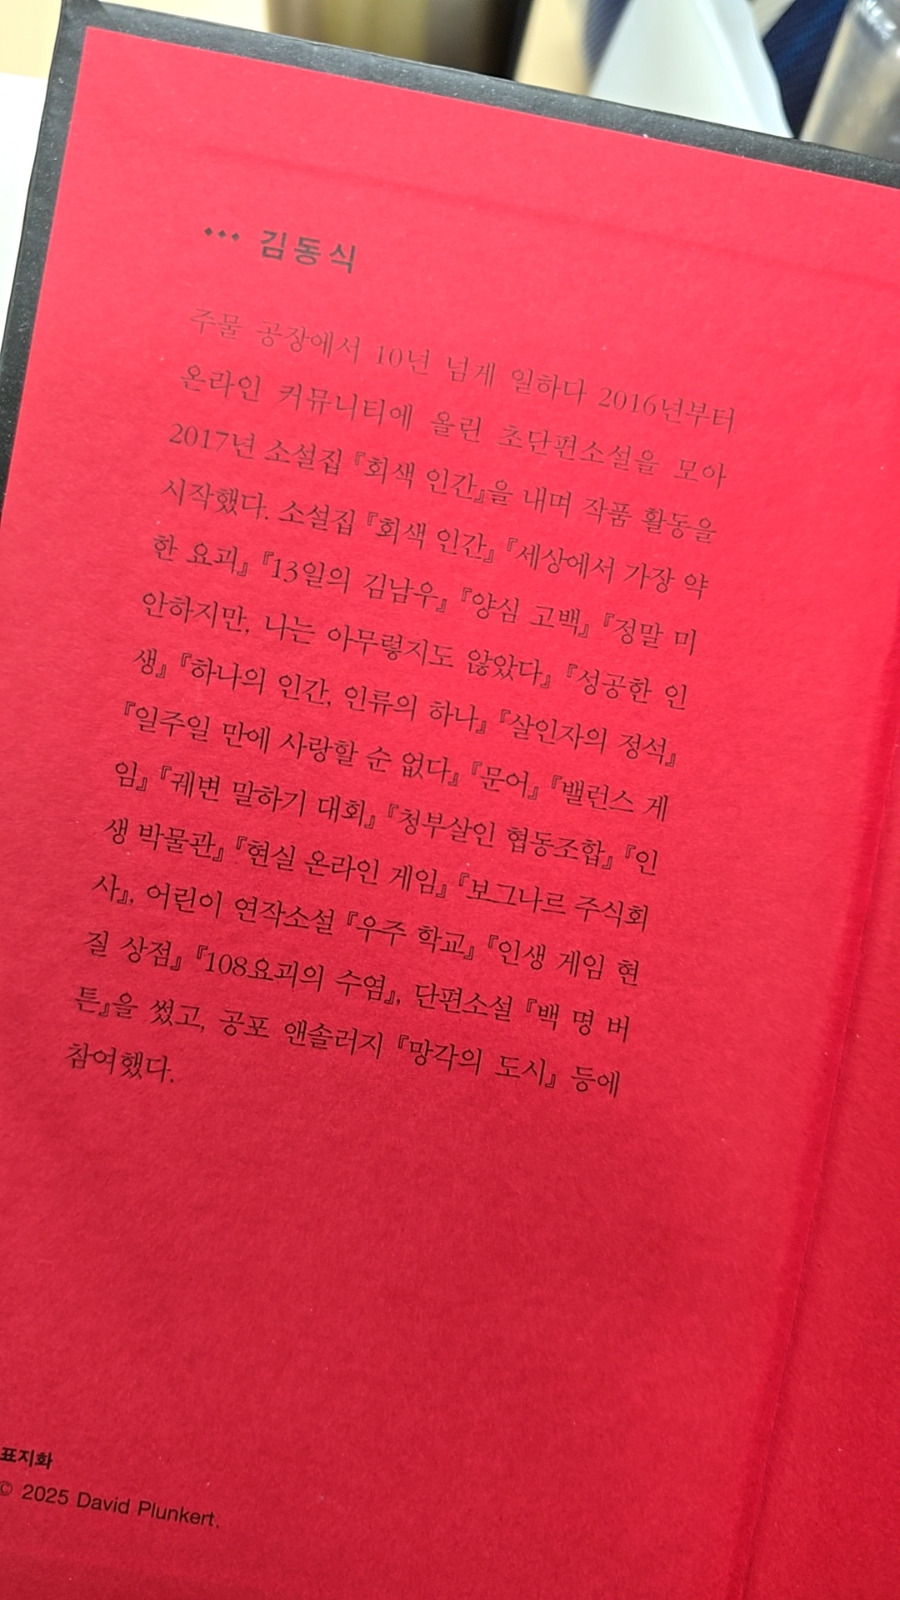 ••• 김동식
주물 공장에서 10년 넘게 일하다 2016년부터
온라인 커뮤니티에 올린 초단편소설을 모아
2017년 소설집 『회색 인간』을 내며 작품 활동을
시작했다. 소설집 『회색 인간』 『세상에서 가장 약
한 요괴』 『13일의 김남우』 『양심 고백』 『정말 미
안하지만, 나는 아무렇지도 않았다』 『성공한 인
생』 『하나의 인간, 인류의 하나』 『살인자의 정석』
『일주일 만에 사랑할 순 없다』 『문어』 『밸런스 게
임』 『궤변 말하기 대회』 『청부살인 협동조합』 『인
생 박물관』 『현실 온라인 게임』 『보그나르 주식회
사』, 어린이 연작소설 『우주 학교』 『인생 게임 현
질 상점』 『108요괴의 수염』, 단편소설 『백 명 버
튼』을 썼고, 공포 앤솔러지 『망각의 도시』 등에
참여했다.
표지화
© 2025 David Plunkert.